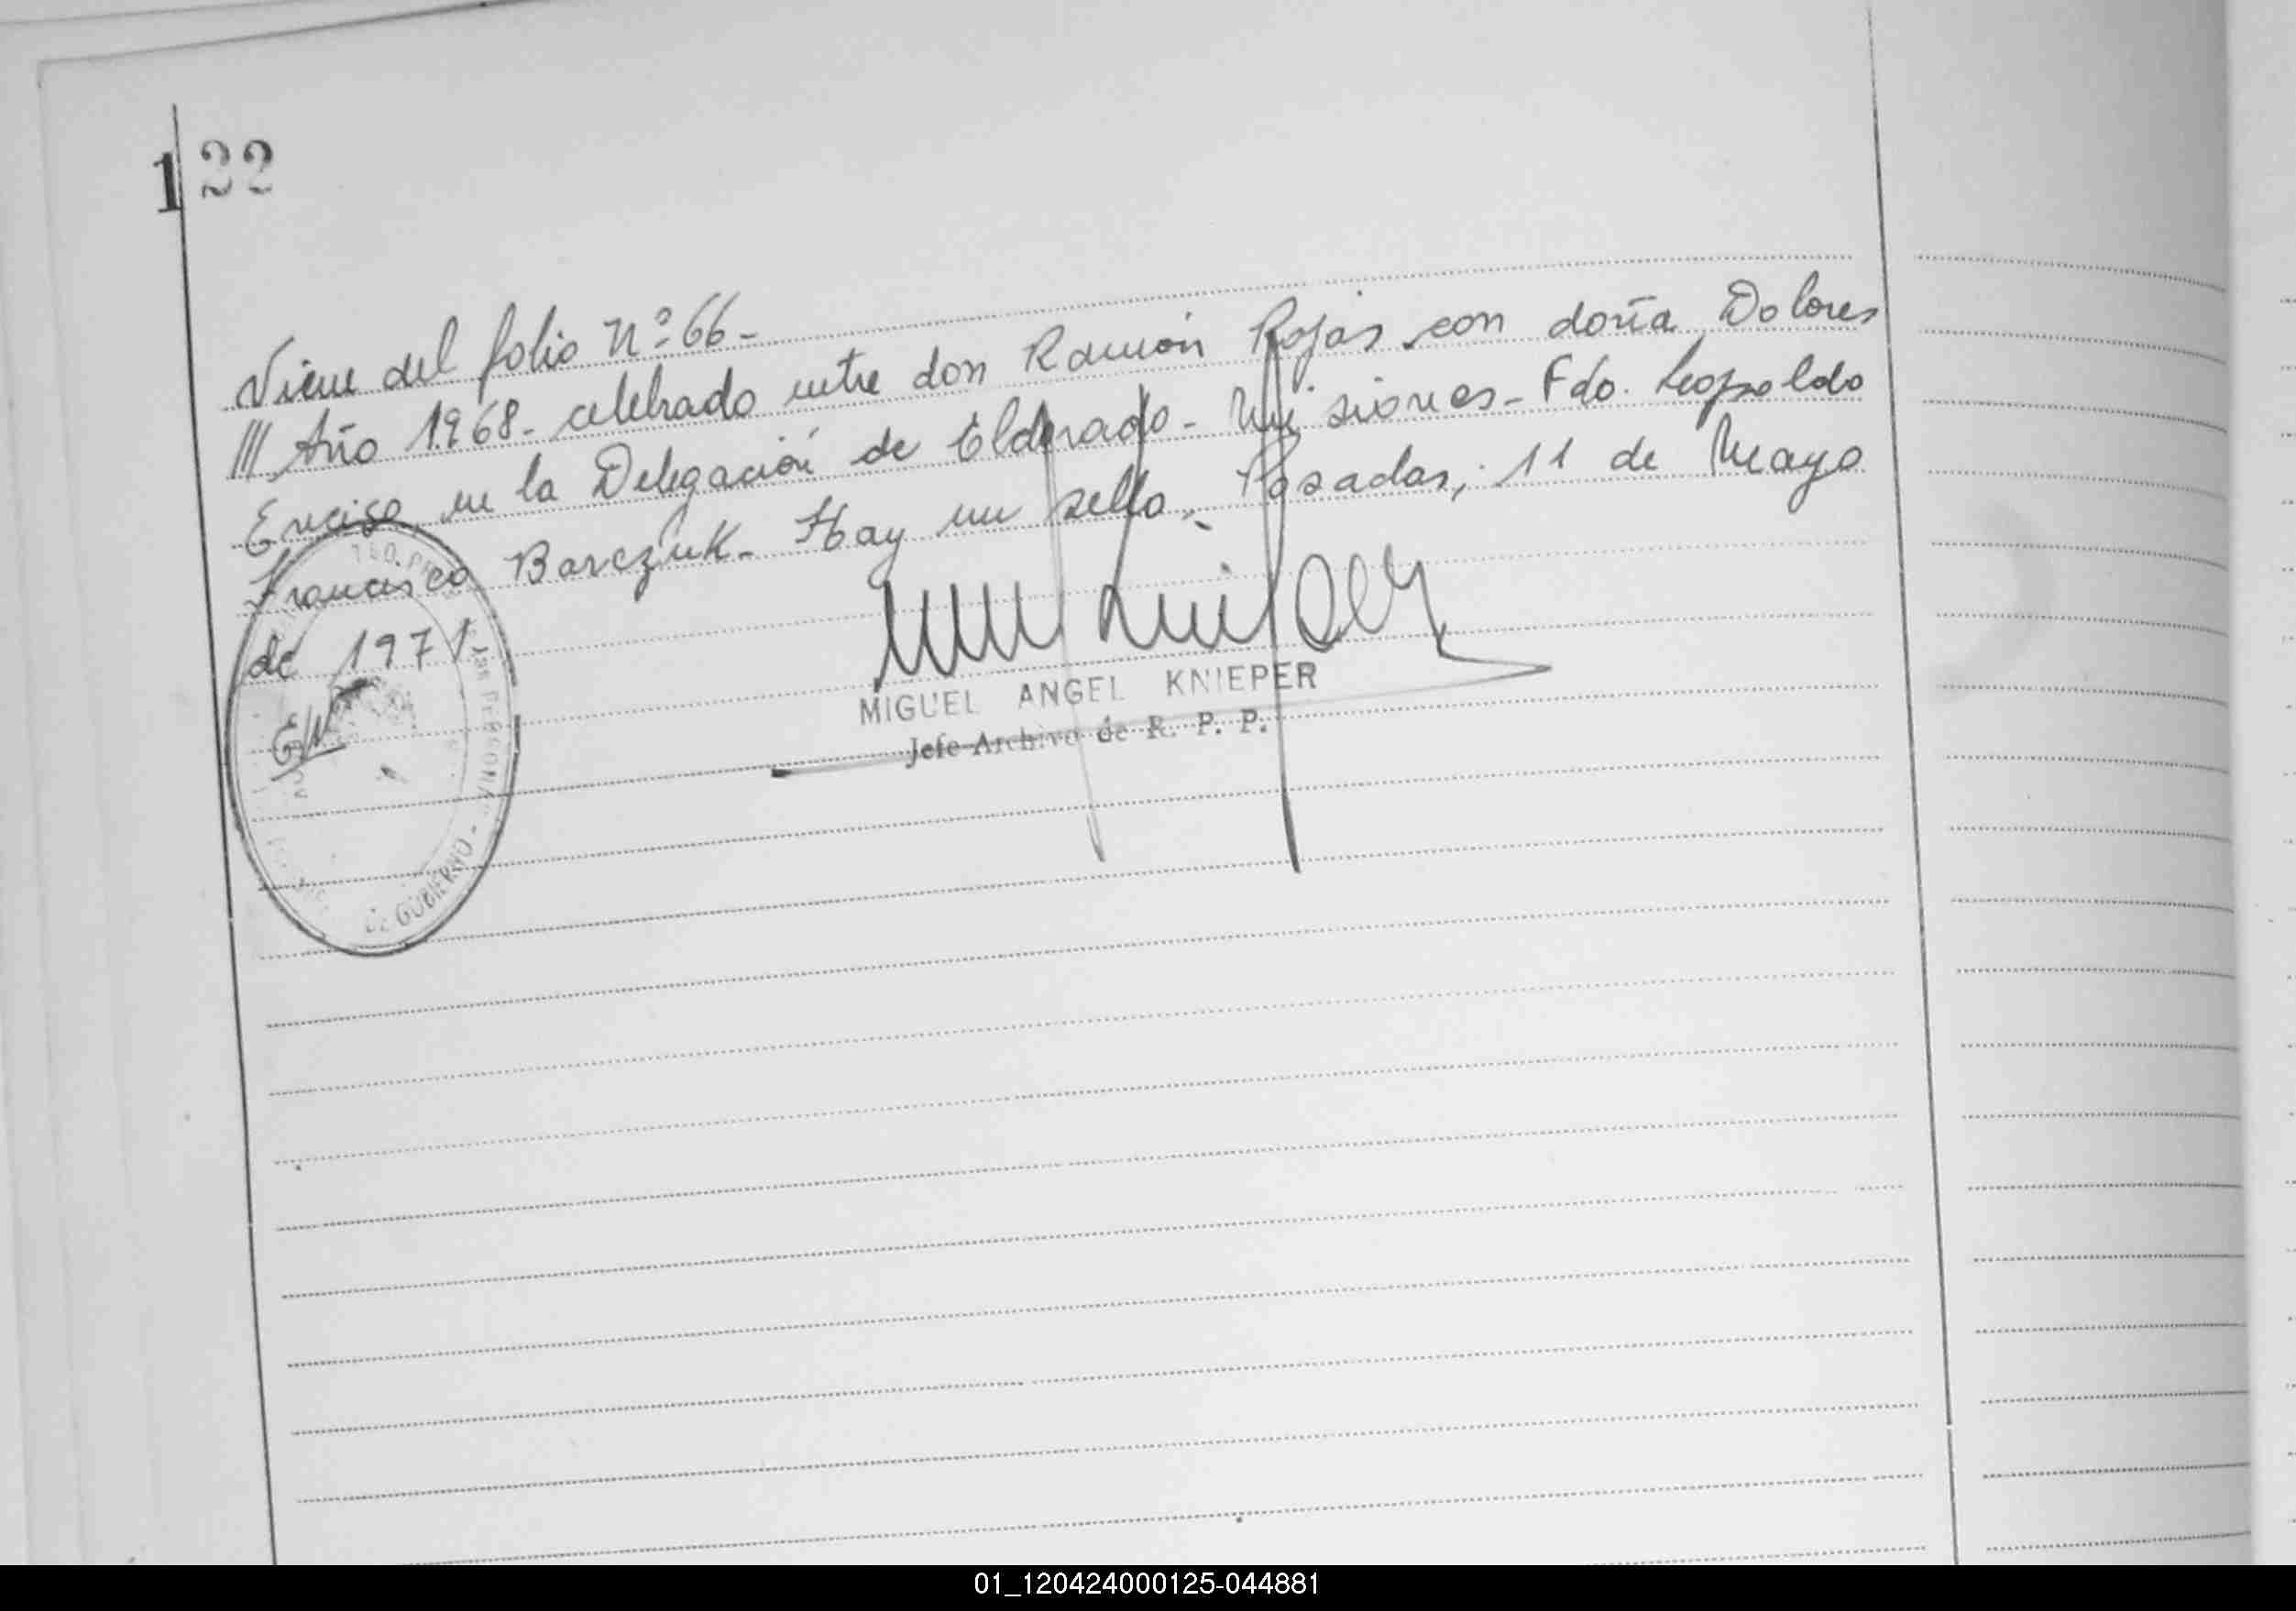 122
Viene del folio Nº 66-
/// Año 1968- celebrado entre don Ramón Rojas con doña Dolores
Enciso, en la Delegación de Eldorado- Misiones- Fdo. Leopoldo
Francisco Barczuk- Hay un sello- Posadas, 11 de Mayo
de 1971-
MIGUEL ANGEL KNIEPER
Jefe Archivo de R. P. P.
DE GOBIERNO-
01_120424000125-044881